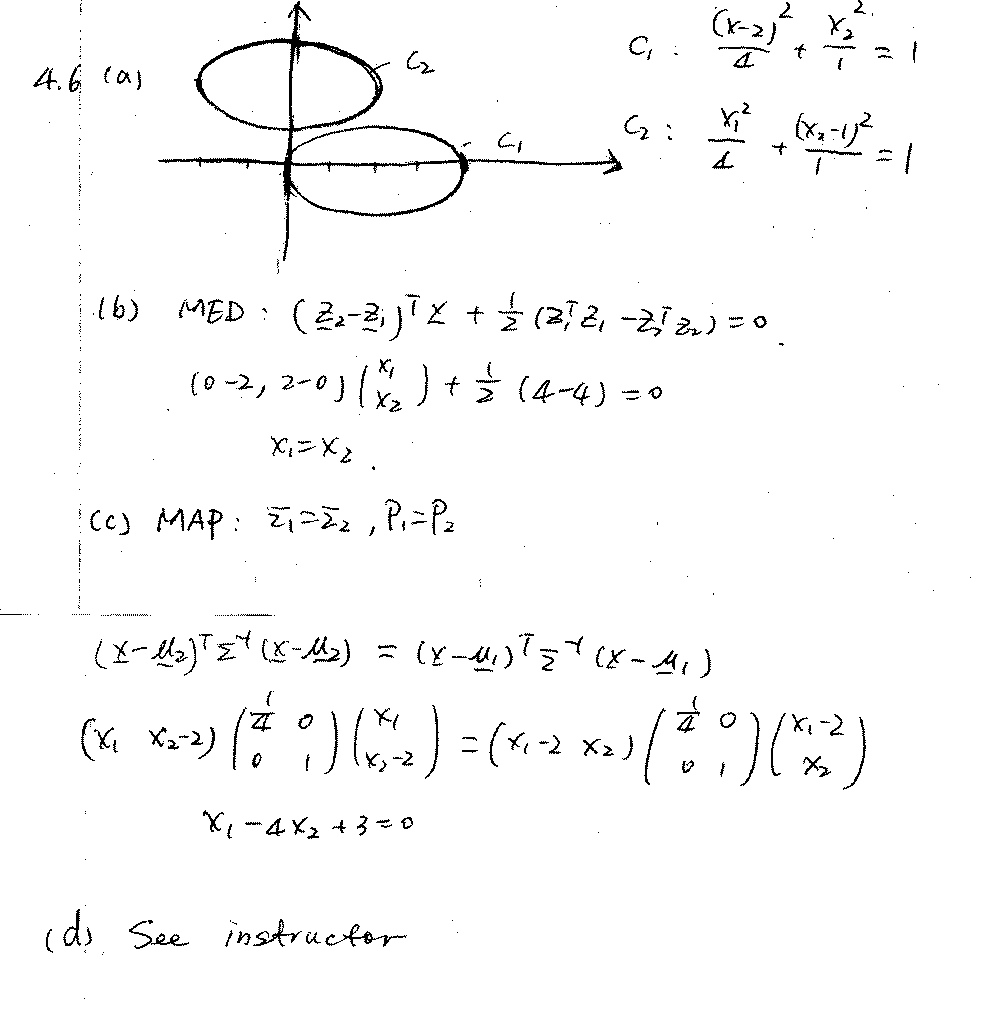 4.6 (a)
C₂
C₁
C₁ : (x-2)²/4 + x₂²/1 = 1
C₂ : x₁²/4 + (x₂-1)²/1 = 1
(b) MED : (z₂-z₁)ᵀ x + 1/2 (z₁ᵀz₁ - z₂ᵀz₂) = 0.
(0-2, 2-0) (x₁ x₂) + 1/2 (4-4) = 0
x₁=x₂.
(c) MAP : Σ₁=Σ₂, P₁=P₂
(x-μ₂)ᵀΣ⁻¹(x-μ₂) = (x-μ₁)ᵀΣ⁻¹(x-μ₁)
(x₁ x₂-2) (1/4 0 0 1) (x₁ x₂-2) = (x₁-2 x₂) (1/4 0 0 1) (x₁-2 x₂)
x₁-4x₂+3=0
(d) See instructor